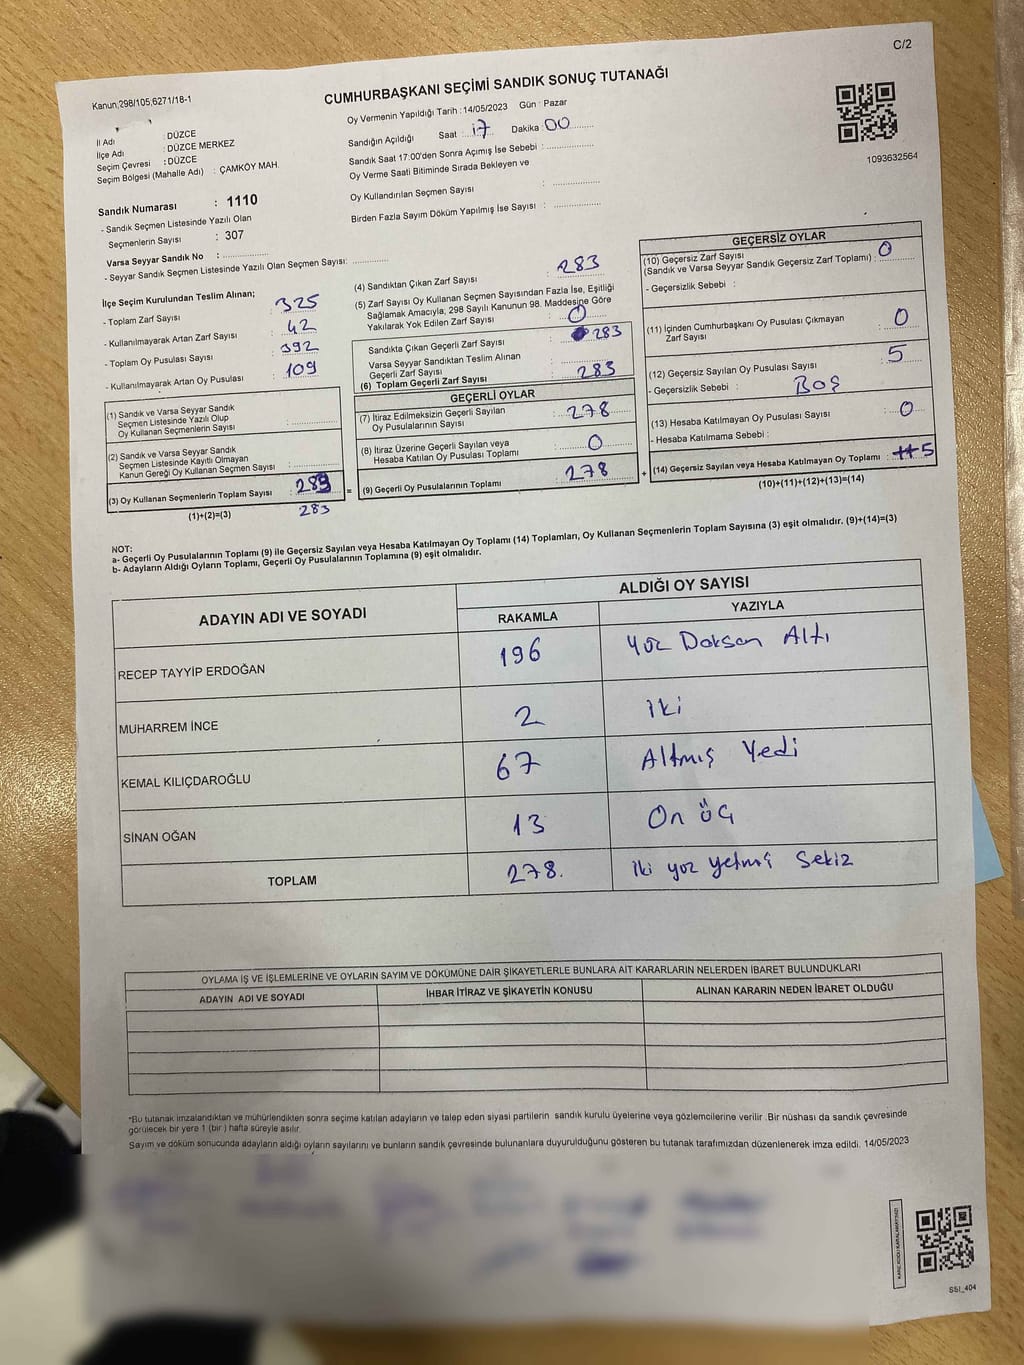 C/2
Kanun,298/105,6271/18-1
CUMHURBAŞKANI SEÇİMİ SANDIK SONUÇ TUTANAĞI
1093632564
İl Adı : DÜZCE
İlçe Adı : DÜZCE MERKEZ
Seçim Çevresi : DÜZCE
Seçim Bölgesi (Mahalle Adı) : ÇAMKÖY MAH.
Sandık Numarası : 1110
- Sandık Seçmen Listesinde Yazılı Olan
Seçmenlerin Sayısı : 307
Varsa Seyyar Sandık No :
- Seyyar Sandık Seçmen Listesinde Yazılı Olan Seçmen Sayısı:
Oy Vermenin Yapıldığı Tarih : 14/05/2023 Gün : Pazar
Sandığın Açıldığı Saat : 17 Dakika : 00
Sandık Saat 17:00'den Sonra Açımış İse Sebebi :
Oy Verme Saati Bitiminde Sırada Bekleyen ve
Oy Kullandırılan Seçmen Sayısı :
Birden Fazla Sayım Döküm Yapılmış İse Sayısı :
İlçe Seçim Kurulundan Teslim Alınan;
- Toplam Zarf Sayısı : 325
- Kullanılmayarak Artan Zarf Sayısı : 42
- Toplam Oy Pusulası Sayısı : 392
- Kullanılmayarak Artan Oy Pusulası : 109
(1) Sandık ve Varsa Seyyar Sandık
Seçmen Listesinde Yazılı Olup
Oy Kullanan Seçmenlerin Sayısı :
(2) Sandık ve Varsa Seyyar Sandık
Seçmen Listesinde Kayıtlı Olmayan
Kanun Gereği Oy Kullanan Seçmen Sayısı :
(3) Oy Kullanan Seçmenlerin Toplam Sayısı : 283 =
(1)+(2)=(3) 283
(4) Sandıktan Çıkan Zarf Sayısı : 283
(5) Zarf Sayısı Oy Kullanan Seçmen Sayısından Fazla İse, Eşitliği
Sağlamak Amacıyla; 298 Sayılı Kanunun 98. Maddesine Göre
Yakılarak Yok Edilen Zarf Sayısı : 0
Sandıkta Çıkan Geçerli Zarf Sayısı : 283
Varsa Seyyar Sandıktan Teslim Alınan
Geçerli Zarf Sayısı :
(6) Toplam Geçerli Zarf Sayısı : 283
GEÇERLİ OYLAR
(7) İtiraz Edilmeksizin Geçerli Sayılan
Oy Pusulalarının Sayısı : 278
(8) İtiraz Üzerine Geçerli Sayılan veya
Hesaba Katılan Oy Pusulası Toplamı : 0
(9) Geçerli Oy Pusulalarının Toplamı : 278 +
GEÇERSİZ OYLAR
(10) Geçersiz Zarf Sayısı
(Sandık ve Varsa Seyyar Sandık Geçersiz Zarf Toplamı) : 0
- Geçersizlik Sebebi :
(11) İçinden Cumhurbaşkanı Oy Pusulası Çıkmayan
Zarf Sayısı : 0
(12) Geçersiz Sayılan Oy Pusulası Sayısı : 5
- Geçersizlik Sebebi : BOŞ
(13) Hesaba Katılmayan Oy Pusulası Sayısı : 0
- Hesaba Katılmama Sebebi :
(14) Geçersiz Sayılan veya Hesaba Katılmayan Oy Toplamı : 5
(10)+(11)+(12)+(13)=(14)
NOT:
a- Geçerli Oy Pusulalarının Toplamı (9) ile Geçersiz Sayılan veya Hesaba Katılmayan Oy Toplamı (14) Toplamları, Oy Kullanan Seçmenlerin Toplam Sayısına (3) eşit olmalıdır. (9)+(14)=(3)
b- Adayların Aldığı Oyların Toplamı, Geçerli Oy Pusulalarının Toplamına (9) eşit olmalıdır.
ADAYIN ADI VE SOYADI ALDIĞI OY SAYISI
RAKAMLA YAZIYLA
RECEP TAYYİP ERDOĞAN 196 Yüz Doksan Altı
MUHARREM İNCE 2 iki
KEMAL KILIÇDAROĞLU 67 Altmış Yedi
SİNAN OĞAN 13 On üç
TOPLAM 278. iki yüz yetmiş Sekiz
OYLAMA İŞ VE İŞLEMLERİNE VE OYLARIN SAYIM VE DÖKÜMÜNE DAİR ŞİKAYETLERLE BUNLARA AİT KARARLARIN NELERDEN İBARET BULUNDUKLARI
ADAYIN ADI VE SOYADI İHBAR İTİRAZ VE ŞİKAYETİN KONUSU ALINAN KARARIN NEDEN İBARET OLDUĞU
*Bu tutanak imzalandıktan ve mühürlendikten sonra seçime katılan adayların ve talep eden siyasi partilerin sandık kurulu üyelerine veya gözlemcilerine verilir .Bir nüshası da sandık çevresinde
görülecek bir yere 1 (bir ) hafta süreyle asılır.
Sayım ve döküm sonucunda adayların aldığı oyların sayılarını ve bunların sandık çevresinde bulunanlara duyurulduğunu gösteren bu tutanak tarafımızdan düzenlenerek imza edildi. 14/05/2023
SSI_404